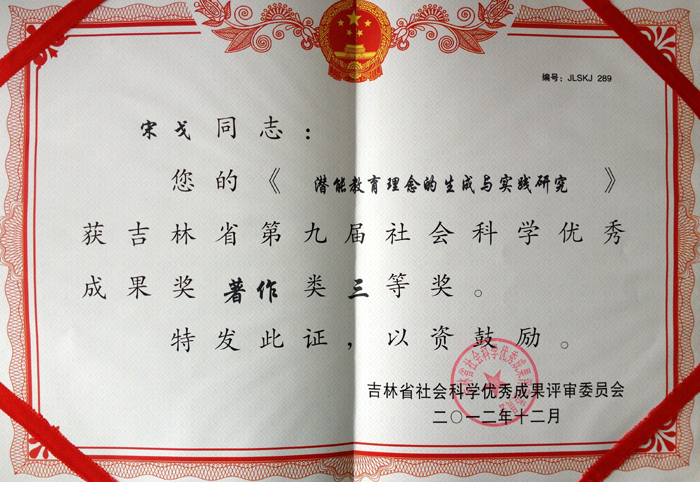 编号：JLSKJ 289
宋戈同志：
您的《潜能教育理念的生成与实践研究》
获吉林省第九届社会科学优秀
成果奖著作类三等奖。
特发此证，以资鼓励。
吉林省社会科学优秀成果评审委员会
二〇一二年十二月